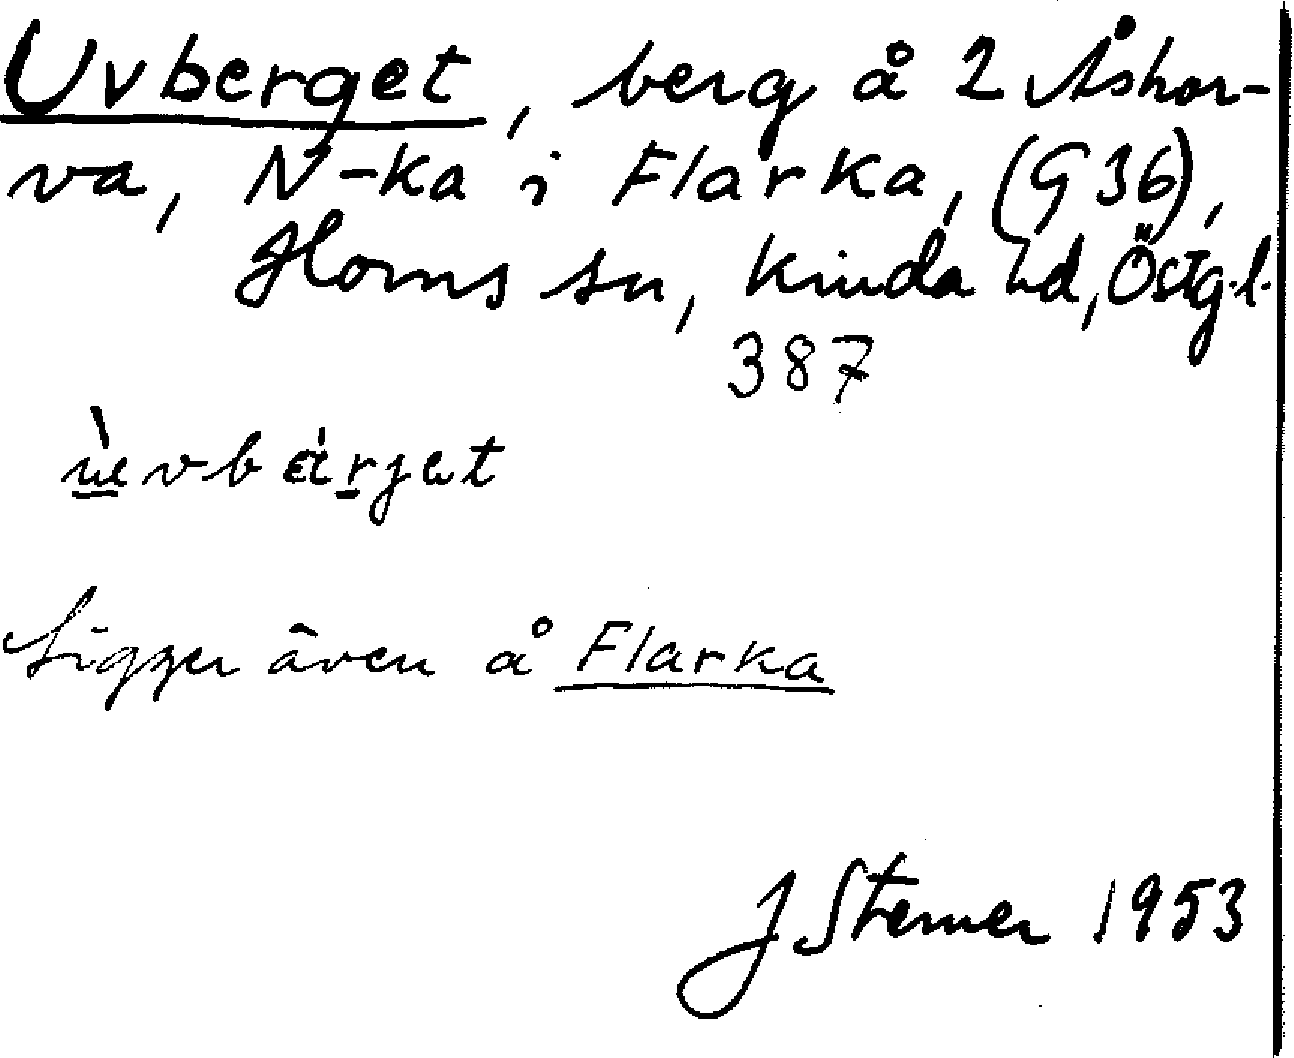 Uvberget, berg å 2 Åskor-
va, N-ka i Flarka, (G36),
Horns sn, Kinda hd, Östg.l.
387
Ligger även å Flarka
J Sterner 1953